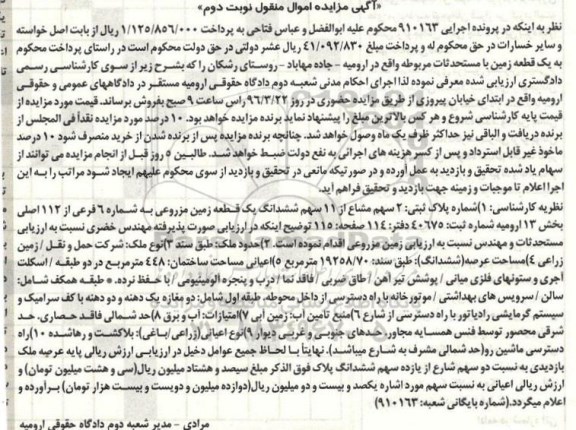 «آگهی مزایده اموال منقول نوبت دوم»
نظر به اینکه در پرونده اجرایی ۹۱۰۱۶۳ محکوم علیه ابوالفضل و عباس فتاحی به پرداخت ۱/۱۲۵/۸۵۶/۰۰۰ ریال از بابت اصل خواسته
و سایر خسارات در حق محکوم له و پرداخت مبلغ ۴۱/۰۹۲/۸۳۰ ریال عشر دولتی در حق دولت محکوم است در راستای پرداخت محکوم
به یک قطعه زمین با مستحدثات مربوطه واقع در ارومیه - جاده مهاباد - روستای رشکان را که بشرح زیر از سوی کارشناسی رسمی
دادگستری ارزیابی شده معرفی نموده لذا اجرای احکام مدنی شعبه دوم دادگاه حقوقی ارومیه مستقر در دادگاههای عمومی و حقوقی
ارومیه واقع در ابتدای خیابان پیروزی از طریق مزایده حضوری در روز ۹۶/۳/۲۲ راس ساعت ۹ صبح بفروش برساند. قیمت مورد مزایده از
قیمت پایه کارشناسی شروع و هر کس بالاترین مبلغ را پیشنهاد نماید برنده مزایده خواهد بود. ۱۰ درصد مورد مزایده نقداً فی المجلس از
برنده دریافت و الباقی نیز حداکثر ظرف یک ماه وصول خواهد شد. چنانچه برنده مزایده پس از برنده شدن از خرید منصرف شود ۱۰ درصد
ماخوذ غیر قابل استرداد و پس از کسر هزینه های اجرائی به نفع دولت ضبط خواهد شد. طالبین ۵ روز قبل از انجام مزایده می توانند از
سهام یاد شده تحقیق و بازدید به عمل آورده و در صورتیکه مانعی در تحقیق و بازدید از سوی محکوم علیهم ایجاد شود مراتب را به این
اجرا اعلام تا موجبات و زمینه جهت بازدید و تحقیق فراهم آید.
نظریه کارشناسی: ۱)شماره پلاک ثبتی: ۲ سهم مشاع از ۱۱ سهم ششدانگ یک قطعه زمین مزروعی به شماره ۶ فرعی از ۱۱۲ اصلی
بخش ۱۳ ارومیه شماره ثبت: ۴۰۶۷۵ دفتر: ۱۱۴ صفحه: ۱۱۵ توضیح اینکه در ارزیابی صورت پذیرفته مهندس خضری نسبت به ارزیابی
مستحدثات و مهندس نسبت به ارزیابی زمین مزروعی اقدام نموده است. ۲)حدود ملک: طبق سند ۳)نوع ملک: شرکت حمل و نقل / زمین
زراعی ۴)مساحت عرصه(ششدانگ): طبق سند: ۱۹۲۵۸/۷۰ مترمربع ۵)اعیانی مساحت ساختمان: ۴۴۸ مترمربع در دو طبقه / اسکلت
آجری و ستونهای فلزی میانی / پوشش تیر آهن / طاق ضربی / فاقد نما / درب و پنجره آلومینیومی / با حفظ نرده. * طبقه همکف شامل:
سالن / سرویس های بهداشتی / موتورخانه با راه دسترسی از داخل محوطه. طبقه اول شامل: دو مغازه یک دهنه و دو دهنه با کف سرامیک و
سیستم گرمایشی رادیاتور با راه دسترسی از شارع ۶)منبع تامین آب: زمین آبی ۷)امتیازات: آب و برق ۸)حد شمالی فاقد حصاری، حد
شرقی محصور توسط فنس همسایه مجاور، حدهای جنوبی و غربی دیوار ۹)نوع اعیانی(زراعی/باغی): بلاکشت و رهاشده ۱۰)راه
دسترسی ماشین رو(حد شمالی مشرف به شارع میباشد). نهایتاً با لحاظ جمیع عوامل دخیل در ارزیابی ارزش ریالی پایه عرصه ملک
بازدیدی به نسبت دو سهم شارع از یازده سهم ششدانگ پلاک فوق الذکر مبلغ سیصد و هشتاد میلیون ریال(سی و هشت میلیون تومان) و
ارزش ریالی اعیانی به نسبت سهم مورد اشاره یکصد و بیست و دو میلیون ریال(دوازده میلیون و دویست و بیست هزار تومان) برآورده و
اعلام میگردد.(شماره بایگانی شعبه: ۹۱۰۱۶۳)
مرادی - مدیر شعبه دوم دادگاه حقوقی ارومیه